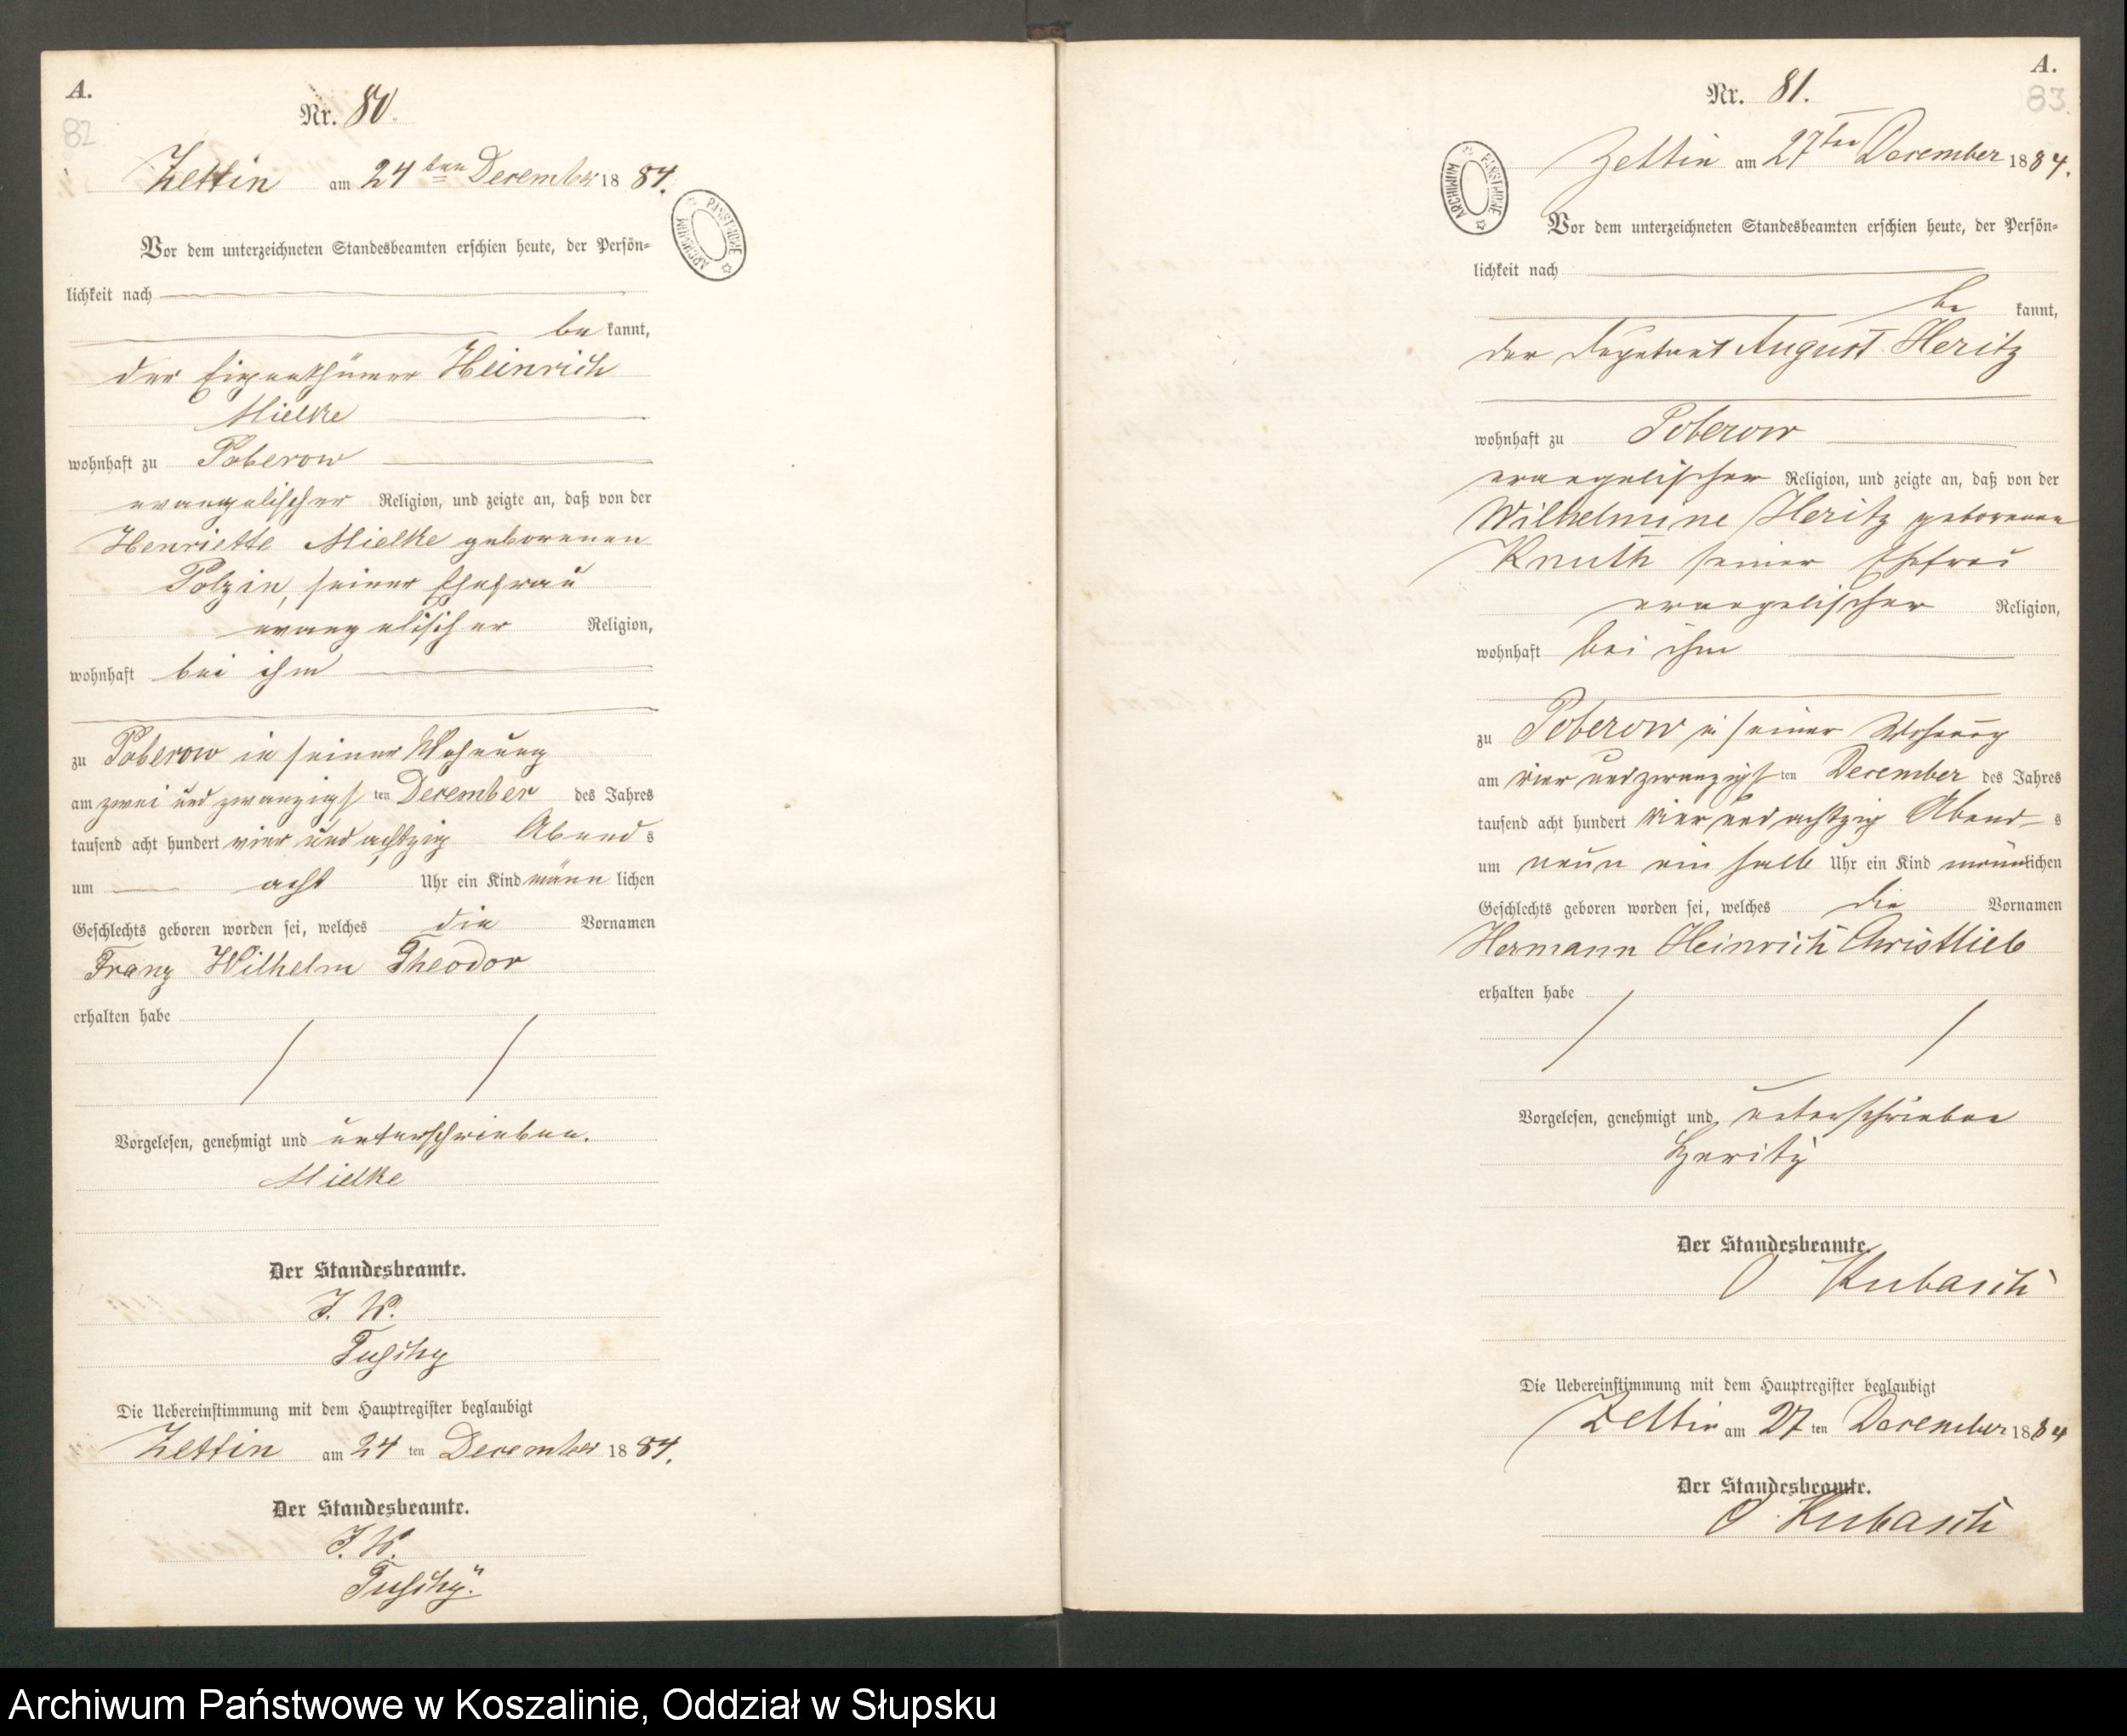 A.
82
Nr. 80.
Zettin am 24ten December 18 84.
Vor dem unterzeichneten Standesbeamten erschien heute, der Persön-
lichkeit nach
be kannt,
der Eigenthümer Heinrich
Mielke
wohnhaft zu Poberow
evangelischer Religion, und zeigte an, daß von der
Henriette Mielke geborenen
Polzin, seiner Ehefrau
evangelischer Religion,
wohnhaft bei ihm
zu Poberow in seiner Wohnung
am zwei und zwanzigs ten December des Jahres
tausend acht hundert vier und achtzig Abend s
um acht Uhr ein Kind männ lichen
Geschlechts geboren worden sei, welches die Vornamen
Franz Wilhelm Theodor
erhalten habe
Vorgelesen, genehmigt und unterschrieben.
Mielke
Der Standesbeamte.
J. V.
Die Uebereinstimmung mit dem Hauptregister beglaubigt
Zettin am 24 ten December 18 84.
Der Standesbeamte.
J. V.
ARCHIWUM PAŃSTWOWE
A.
83
Nr. 81.
Zettin am 27ten December 1884.
Vor dem unterzeichneten Standesbeamten erschien heute, der Persön-
lichkeit nach
be kannt,
der Deputant August Heritz
wohnhaft zu Poberow
evangelischer Religion, und zeigte an, daß von der
Wilhelmine Heritz geborenen
Knuth seiner Ehefrau
evangelischer Religion,
wohnhaft bei ihm
zu Poberow in seiner Wohnung
am vier und zwanzigs ten December des Jahres
tausend acht hundert vier und achtzig Abend s
um neun ein halb Uhr ein Kind männlichen
Geschlechts geboren worden sei, welches die Vornamen
Hermann Heinrich Christlieb
erhalten habe
Vorgelesen, genehmigt und unterschrieben
Heritz
Der Standesbeamte.
O Kubasch
Die Uebereinstimmung mit dem Hauptregister beglaubigt
Zettin am 27 ten December 1884
Der Standesbeamte.
O Kubasch
ARCHIWUM PAŃSTWOWE
Archiwum Państwowe w Koszalinie, Oddział w Słupsku